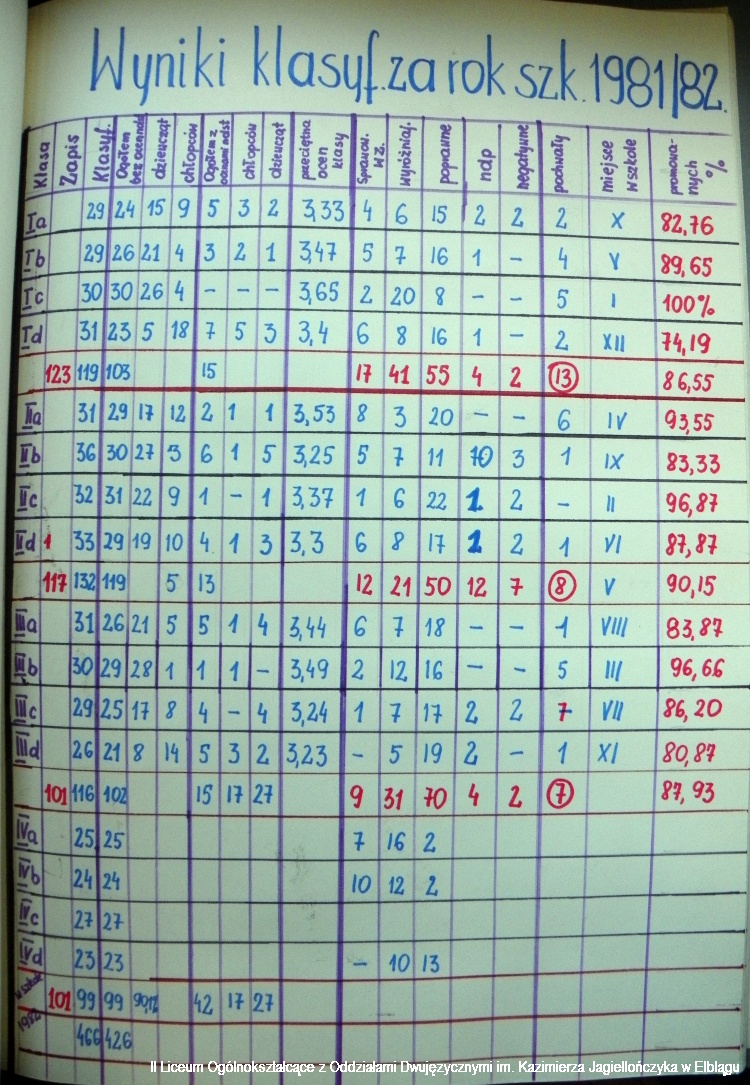 Wyniki klasyf. za rok szk. 1981/82.
Klasa Zapis Klasyf. Ogółem bez ocen ndst dziewcząt chłopców Ogółem z ocenami ndst chłopców dziewcząt przeciętna ocen klasy Sprawow. wz. wyróżniaj. poprawne ndp negatywne pochwały miejsce w szkole promowanych %
Ia 29 24 15 9 5 3 2 3,33 4 6 15 2 2 2 X 82,76
Ib 29 26 21 4 3 2 1 3,47 5 7 16 1 - 4 V 89,65
Ic 30 30 26 4 - - - 3,65 2 20 8 - - 5 I 100%
Id 31 23 5 18 7 5 3 3,4 6 8 16 1 - 2 XII 74,19
123 119 103 15 17 41 55 4 2 13 86,55
IIa 31 29 17 12 2 1 1 3,53 8 3 20 - - 6 IV 93,55
IIb 36 30 27 3 6 1 5 3,25 5 7 11 10 3 1 IX 83,33
IIc 32 31 22 9 1 - 1 3,37 1 6 22 1 2 - II 96,87
IId 1 33 29 19 10 4 1 3 3,3 6 8 17 1 2 1 VI 87,87
117 132 119 5 13 12 21 50 12 7 8 V 90,15
IIIa 31 26 21 5 5 1 4 3,44 6 7 18 - - 1 VIII 83,87
IIIb 30 29 28 1 1 1 - 3,49 2 12 16 - - 5 III 96,66
IIIc 29 25 17 8 4 - 4 3,24 1 7 17 2 2 7 VII 86,20
IIId 26 21 8 14 5 3 2 3,23 - 5 19 2 - 1 XI 80,87
101 116 102 15 17 27 9 31 70 4 2 7 87,93
IVa 25 25 7 16 2
IVb 24 24 10 12 2
IVc 27 27
IVd 23 23 - 10 13
w szkole 101 99 99 42 17 27
1982 466 426
II Liceum Ogólnokształcące z Oddziałami Dwujęzycznymi im. Kazimierza Jagiellończyka w Elblągu